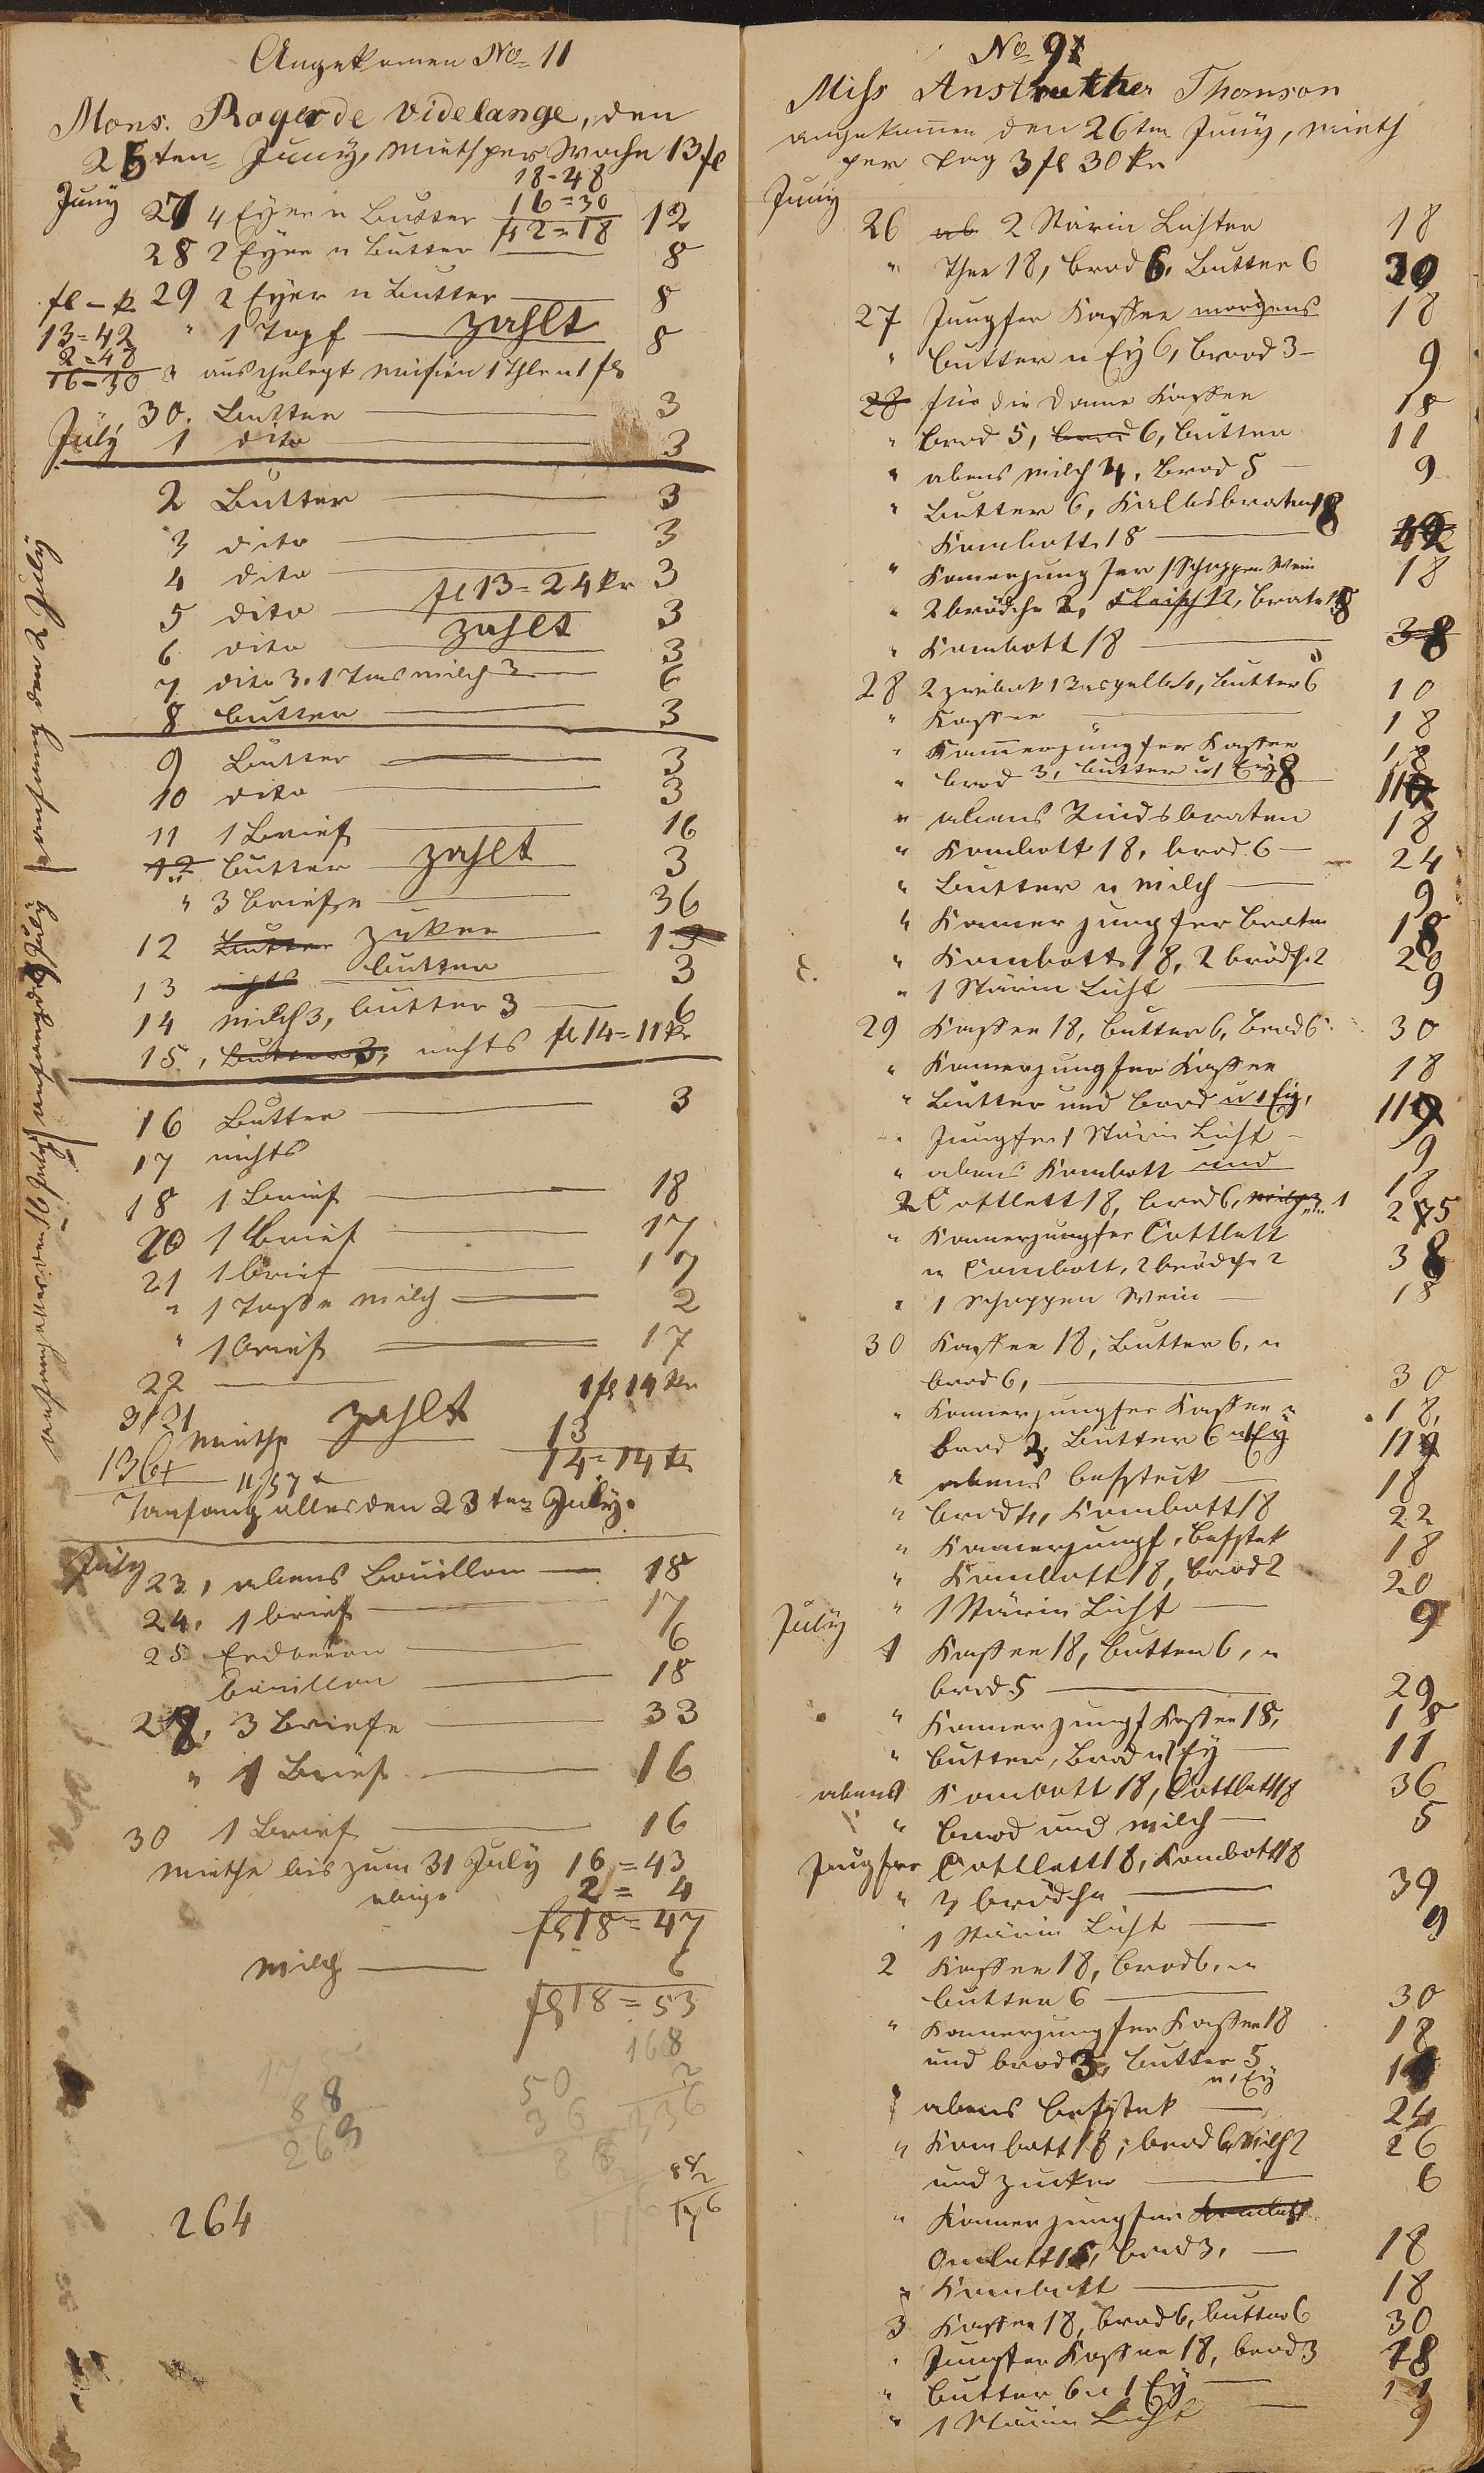 Angekomen No 11
Mons. Roger de Videlange, den
26ten Juny, Mieth per Woche 13 fl
18-48
Juny 27 4 Eyer u Butter 16=30 12
28 2 Eyer u Butter 42=18 8
fl - k 29 2 Eyer u Butter 8
13=42 " 1 Topf zahlt 8
2=48
16-30 " ausgelegt 1 Thlr u 1 fl
30. Butter 3
July 1 dito 3
2 Butter 3
3 dito 3
4 dito 3
5 dito fl 13=24 kr 3
6 dito zahlt 3
7 dito 3. 1 Tas milch 3 6
8 butter 3
9 Butter 3
10 dito 3
11 1 Brief 16
12 butter zahlt 3
" 3 Briefe 36
12 Butter Zuker 13
13 nichts butter 3
14 milch 3, butter 3 6
15, butter 3, nichts fl 14=11 kr
16 Butter 3
17 nichts
18 1 Brief 18
20 1 Brief 17
21 1 brief 17
" 1 Tasse milch 2
" 1 brief 17
22 1 fl 14 kr
3/21 Miethe zahlt 13
136x 14=14 kr
11/57 x
Tanfang alles den 23ten July.
July 23, abens Bouillon 18
24. 1 brief 17
25 Erdbeern 6
bouillon 18
28, 3 Briefe 33
" 1 Brief 16
30 1 Brief 16
Miethe bis zum 31 July 16=43
2= 4
fl 18=47
Milch 6
fl 18=53
168
2
336
50
36
88
263
264
176
anfang den 2 July
anfang den 9 July
anfang wieder den 16 July
No 91
Miss Anstruther Thomson
angekomen den 26ten Juny, Mieth
per Tag 3 fl 30 kr
Juny
26 ab 2 Stärin Lichter 18
" Thee 18, brod 6, Butter 6 30
27 Jungfer Kaffee morgens 18
" butter u Ey 6, brod 3 9
28 für die Dame Kaffee 18
" brod 5, brod 6, butter 11
" abens milch 4, Brod 5 9
" Butter 6, Kalbsbraten 18
Kombott 18 42
" Kamerjungfer 1 Schoppen Wein 18
" 2 brödche 2, Fleisch 12, brate 18
" Kombott 18 38
28 2 zwibak, butter 6 10
" Kaffee 18
" Kamerjungfer Kaffee 18
" brod 3, butter u 1 Ey 8 11
" abens Rindsbraten 18
" Kombott 18, brod 6 24
" Butter u milch 9
" Kamerjungfer braten 18
" Kombott 18, 2 brödch 2 20
" 1 Stärin Licht 9
29 Kaffee 18, butter 6, brod 6 30
" Kamerjungfer Kaffee 18
" Butter und brod u 1 Ey, 11
" Jungfer 1 Stärin Licht 9
" abens Kombott und 18
2 Cottlett 18, brod 6, milch 1 25
" Kamerjungfer Cottlett
u Combott, 2 brödche 2 38
" 1 Schoppen Wein 18
30 Kaffee 18, Butter 6, u
brod 6, 30
" Kamerjungfer Kaffee u 18,
brod 3, Butter 6 u 1 Ey 11
" abens befsteck 18
" brod 4, Kombott 18 22
" Kamerjungf, befstek 18
" Kombott 18, brod 2 20
" 1 Stärin Licht 9
July
1 Kaffee 18, butter 6, u
brod 5 29
" Kamerjungf Kaffee 18, 18
" butter, Brod u 1 Ey 11
abens Kombott 18, Cottlett 18 36
" brod und milch 5
Jungfer Cottlett 18, Kombott 18
" 3 brödche 39
" 1 Stärin Licht 9
2 Kaffee 18, brod 6, u
butter 6 30
" Kamerjungfer Kaffee 18 18
und brod 3, butter 5
u 1 Ey
" abens befstek 24
" Kombott 18, brod 6, Milch 2 26
und zucker 6
" Kamerjungfer Kombott
Omlett 15, brod 3, 18
" Kombott 18
3 Kaffee 18, brod 6, butter 6 30
" Jungfer Kaffee 18, brod 3 18
" butter 6 u 1 Ey 11
" 1 Stärin Licht 9